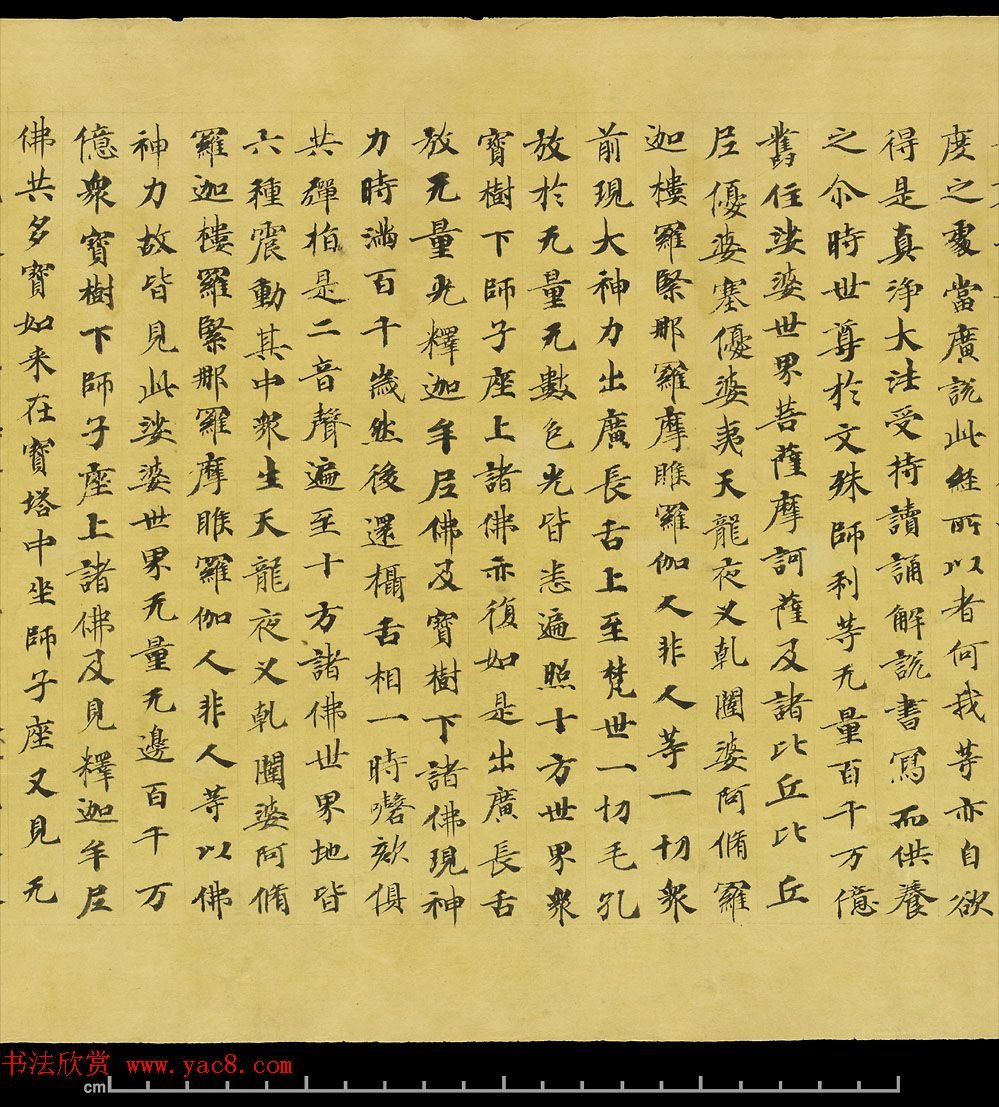 度之處當廣說此經所以者何我等亦自欲
得是真淨大法受持讀誦解說書寫而供養
之尒時世尊於文殊師利等无量百千万億
舊住娑婆世界菩薩摩訶薩及諸比丘比丘
尼優婆塞優婆夷天龍夜叉乹闥婆阿脩羅
迦樓羅緊那羅摩睺羅伽人非人等一切衆
前現大神力出廣長舌上至梵世一切毛孔
放於无量无數色光皆悉遍照十方世界衆
寶樹下師子座上諸佛亦復如是出廣長舌
放无量光釋迦牟尼佛及寶樹下諸佛現神
力時滿百千歲然後還攝舌相一時謦欬俱
共彈指是二音聲遍至十方諸佛世界地皆
六種震動其中衆生天龍夜叉乹闥婆阿脩
羅迦樓羅緊那羅摩睺羅伽人非人等以佛
神力故皆見此娑婆世界无量无邊百千万
億衆寶樹下師子座上諸佛及見釋迦牟尼
佛共多寶如来在寶塔中坐師子座又見无
书法欣赏 www.yac8.com
cm